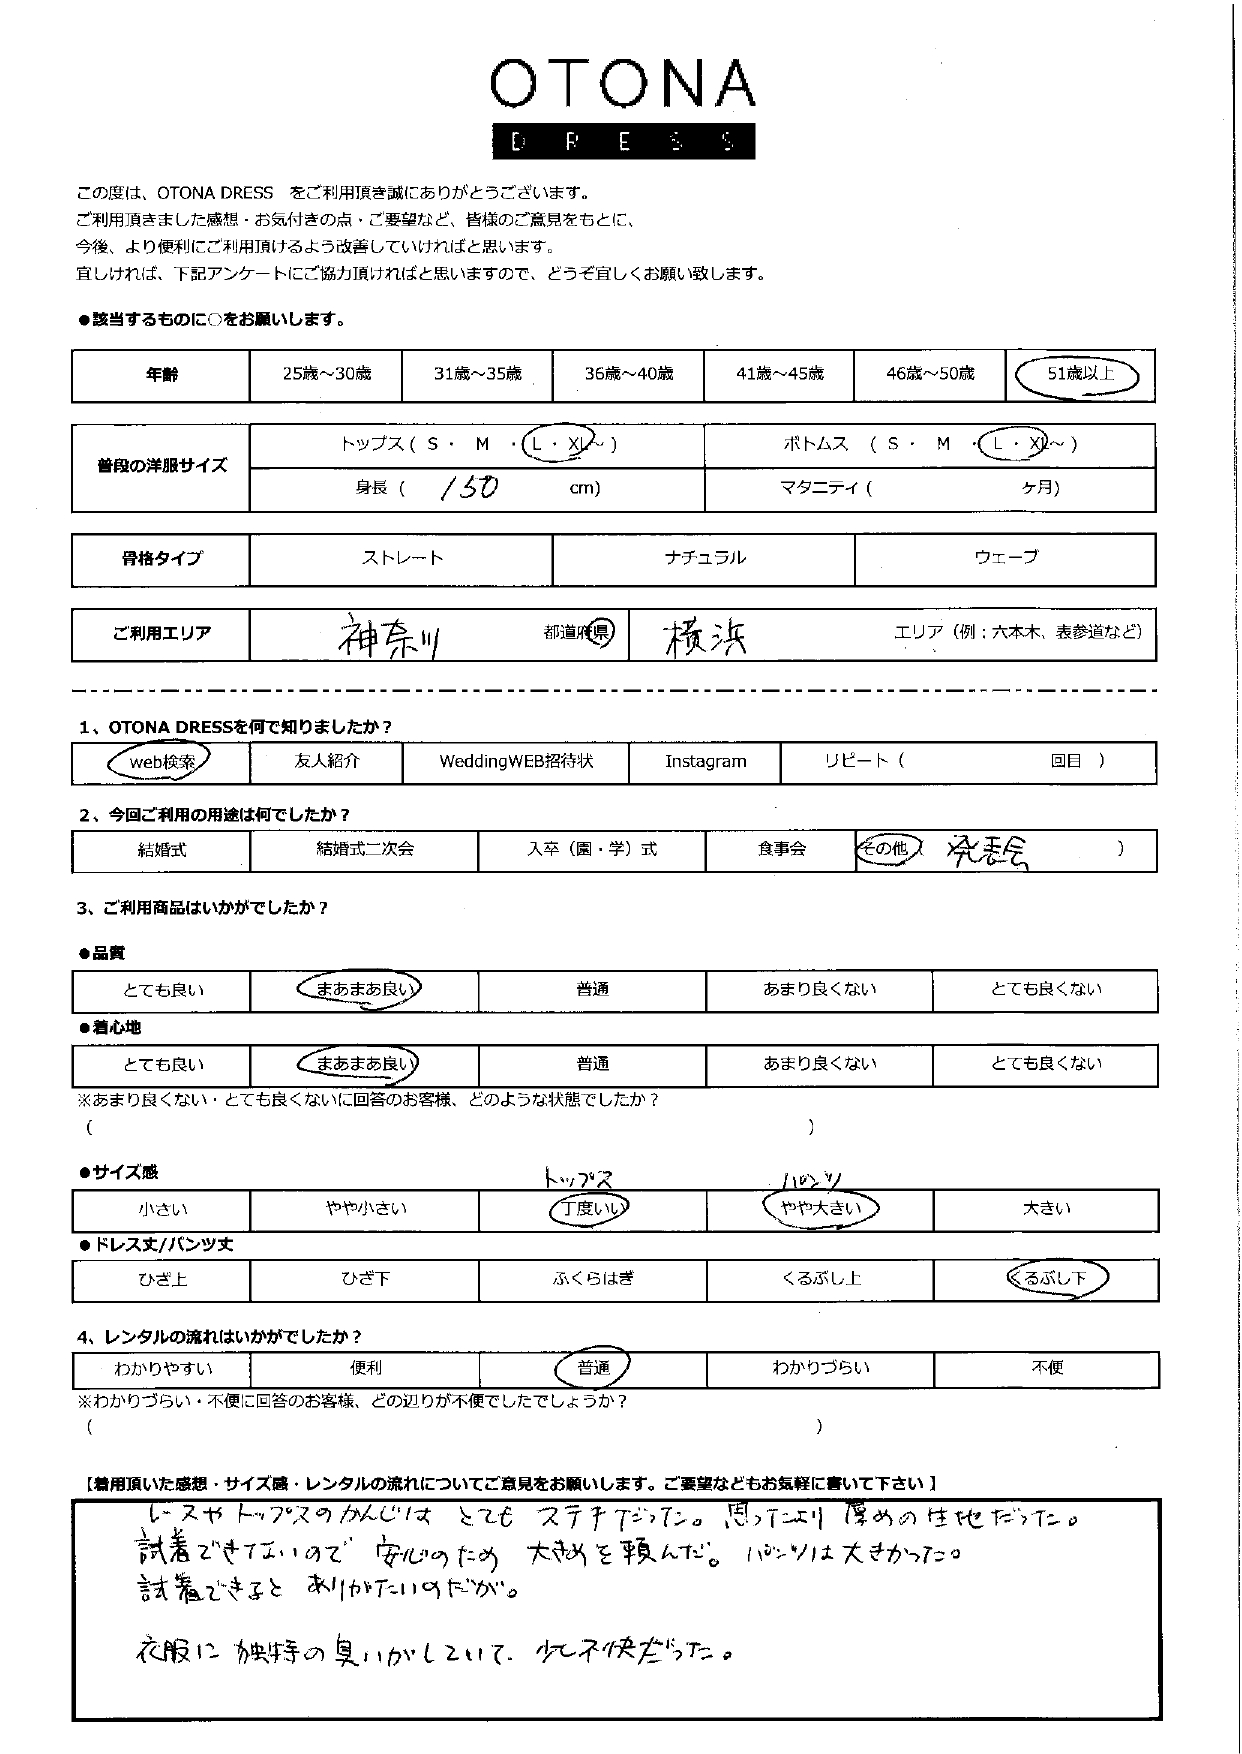 OTONA
DRESS
この度は、OTONA DRESS をご利用頂き誠にありがとうございます。
ご利用頂きました感想・お気付きの点・ご要望など、皆様のご意見をもとに、
今後、より便利にご利用頂けるよう改善していければと思います。
宜しければ、下記アンケートにご協力頂ければと思いますので、どうぞ宜しくお願い致します。
●該当するものに○をお願いします。
年齢 25歳～30歳 31歳～35歳 36歳～40歳 41歳～45歳 46歳～50歳 51歳以上
普段の洋服サイズ
トップス ( S ・ M ・ L ・ XL～ ) ボトムス ( S ・ M ・ L ・ XL～ )
身長 ( 150 cm) マタニティ ( ヶ月)
骨格タイプ ストレート ナチュラル ウェーブ
ご利用エリア 神奈川 都道府県 横浜 エリア（例：六本木、表参道など）
1、OTONA DRESSを何で知りましたか？
web検索 友人紹介 WeddingWEB招待状 Instagram リピート ( 回目 )
2、今回ご利用の用途は何でしたか？
結婚式 結婚式二次会 入卒（園・学）式 食事会 その他 ( 発表会 )
3、ご利用商品はいかがでしたか？
●品質
とても良い まあまあ良い 普通 あまり良くない とても良くない
●着心地
とても良い まあまあ良い 普通 あまり良くない とても良くない
※あまり良くない・とても良くないに回答のお客様、どのような状態でしたか？
( )
●サイズ感
トップス パンツ
小さい やや小さい 丁度いい やや大きい 大きい
●ドレス丈/パンツ丈
ひざ上 ひざ下 ふくらはぎ くるぶし上 くるぶし下
4、レンタルの流れはいかがでしたか？
わかりやすい 便利 普通 わかりづらい 不便
※わかりづらい・不便に回答のお客様、どの辺りが不便でしたでしょうか？
( )
【着用頂いた感想・サイズ感・レンタルの流れについてご意見をお願いします。ご要望などもお気軽に書いて下さい 】
レースやトップスのかんじは とても ステキだった。思ったより 厚めの生地だった。
試着できてないので 安心のため 大きめを頼んだ。パンツは大きかった。
試着できると ありがたいのだが。
衣服に 独特の臭いがしていて、少し不快だった。